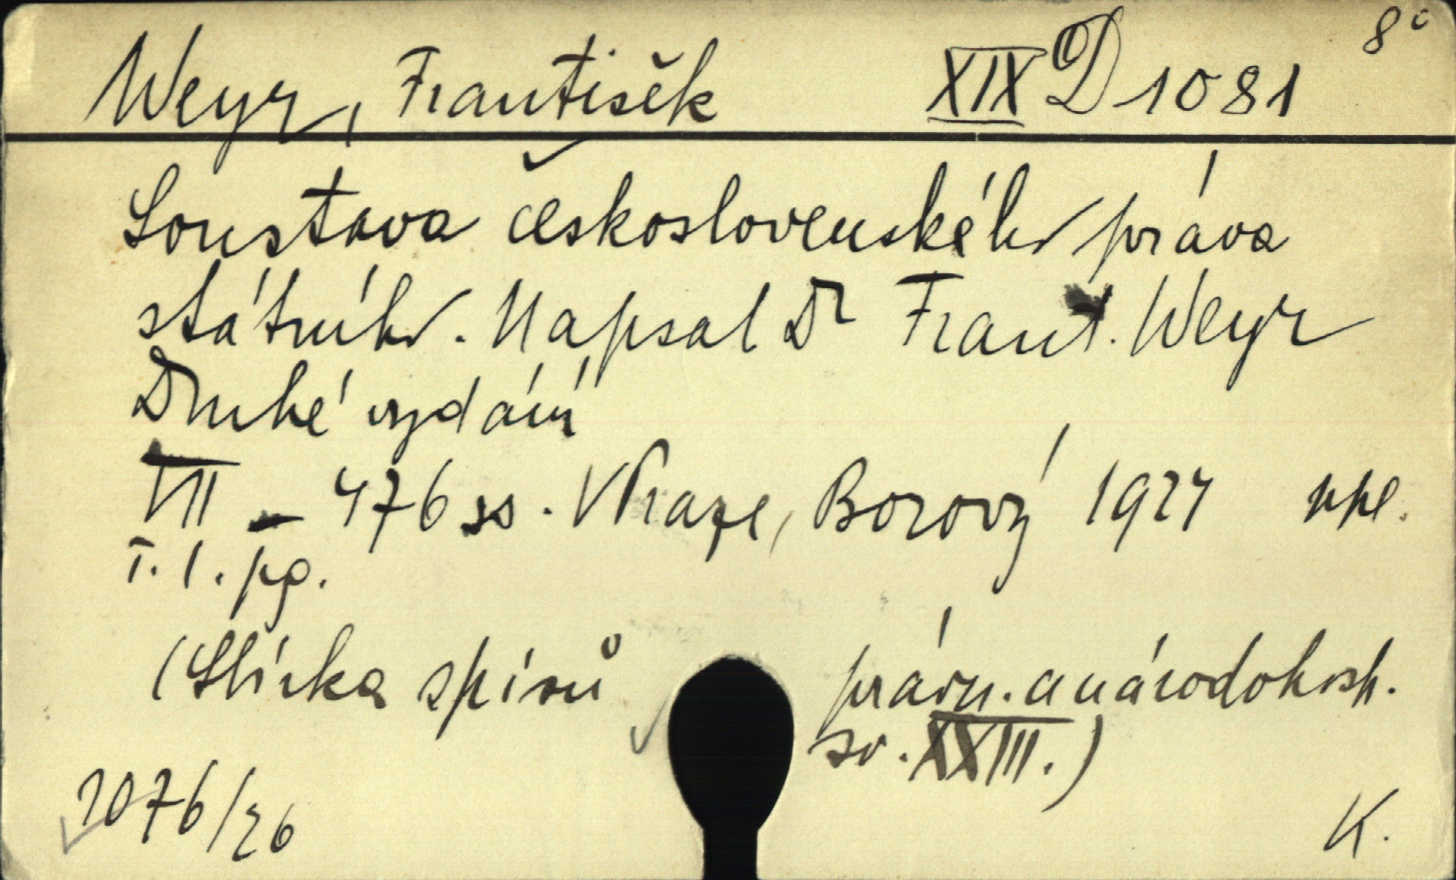 Weyr, František XIX D 1081 8°
Soustava československého práva
státního. Napsal Dr Frant. Weyr
Druhé vydání
VII – 476 ss. V Praze, Borový 1924 ppl.
T. 1. pg.
(Sbírka spisů právn. a národohosp.
sv. XXIII.)
2076/26
K.